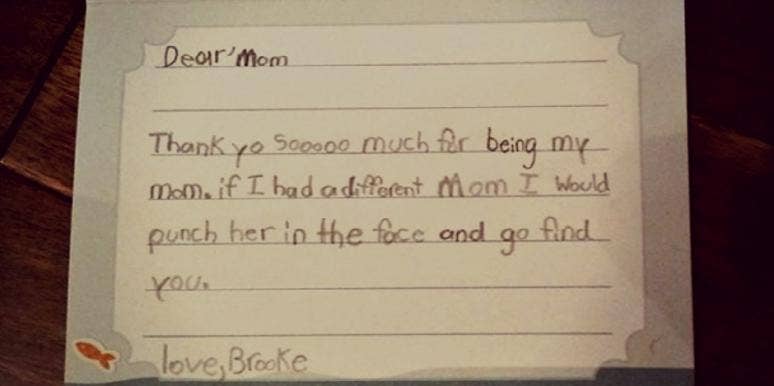 Dear'Mom
Thank yo Sooooo much for being my
mom. if I had a different Mom I Would
punch her in the face and go find
you.
love, Brooke